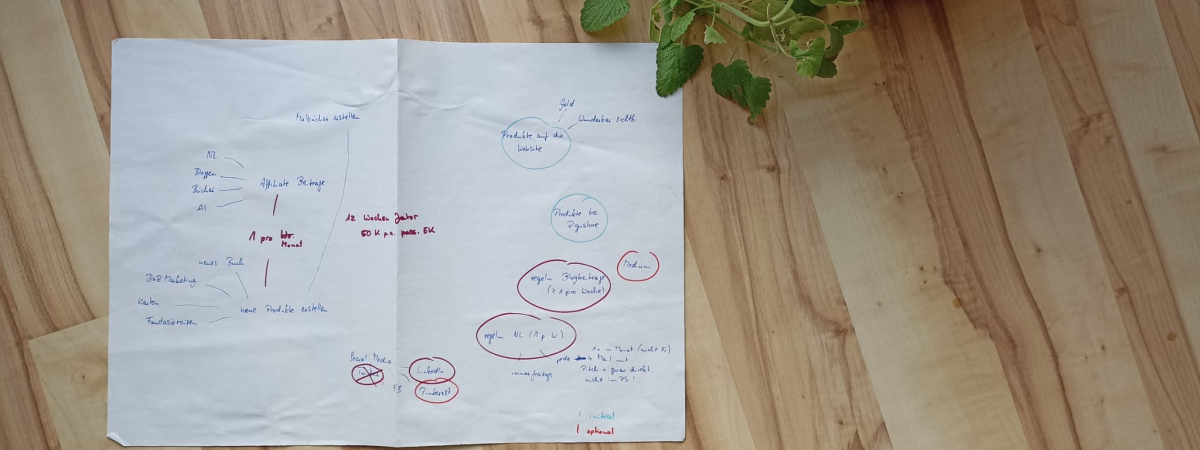 Malbücher erstellen
NL
Bloggen
Bücher
AI
Affiliate Beiträge
1 pro
Monat
neues Buch
Marketing
Karten
Fantasiereisen
neue Produkte erstellen
12 Wochen
50 K p.a. pass. EK
Social Media
LinkedIn
FB
Pinterest
Geld
Wunderbar sichtb.
Produkte auf die
Website
Produkte bei
Digistore
Medium
regelm Blogbeiträge
(≥ 1 pro Woche)
regelm NL (1 p W)
immer freitags
1 x im Monat (nicht Fr)
4 Mal mit
Pitch + zwar direkt,
nicht im PS!
1 initial
1 optional